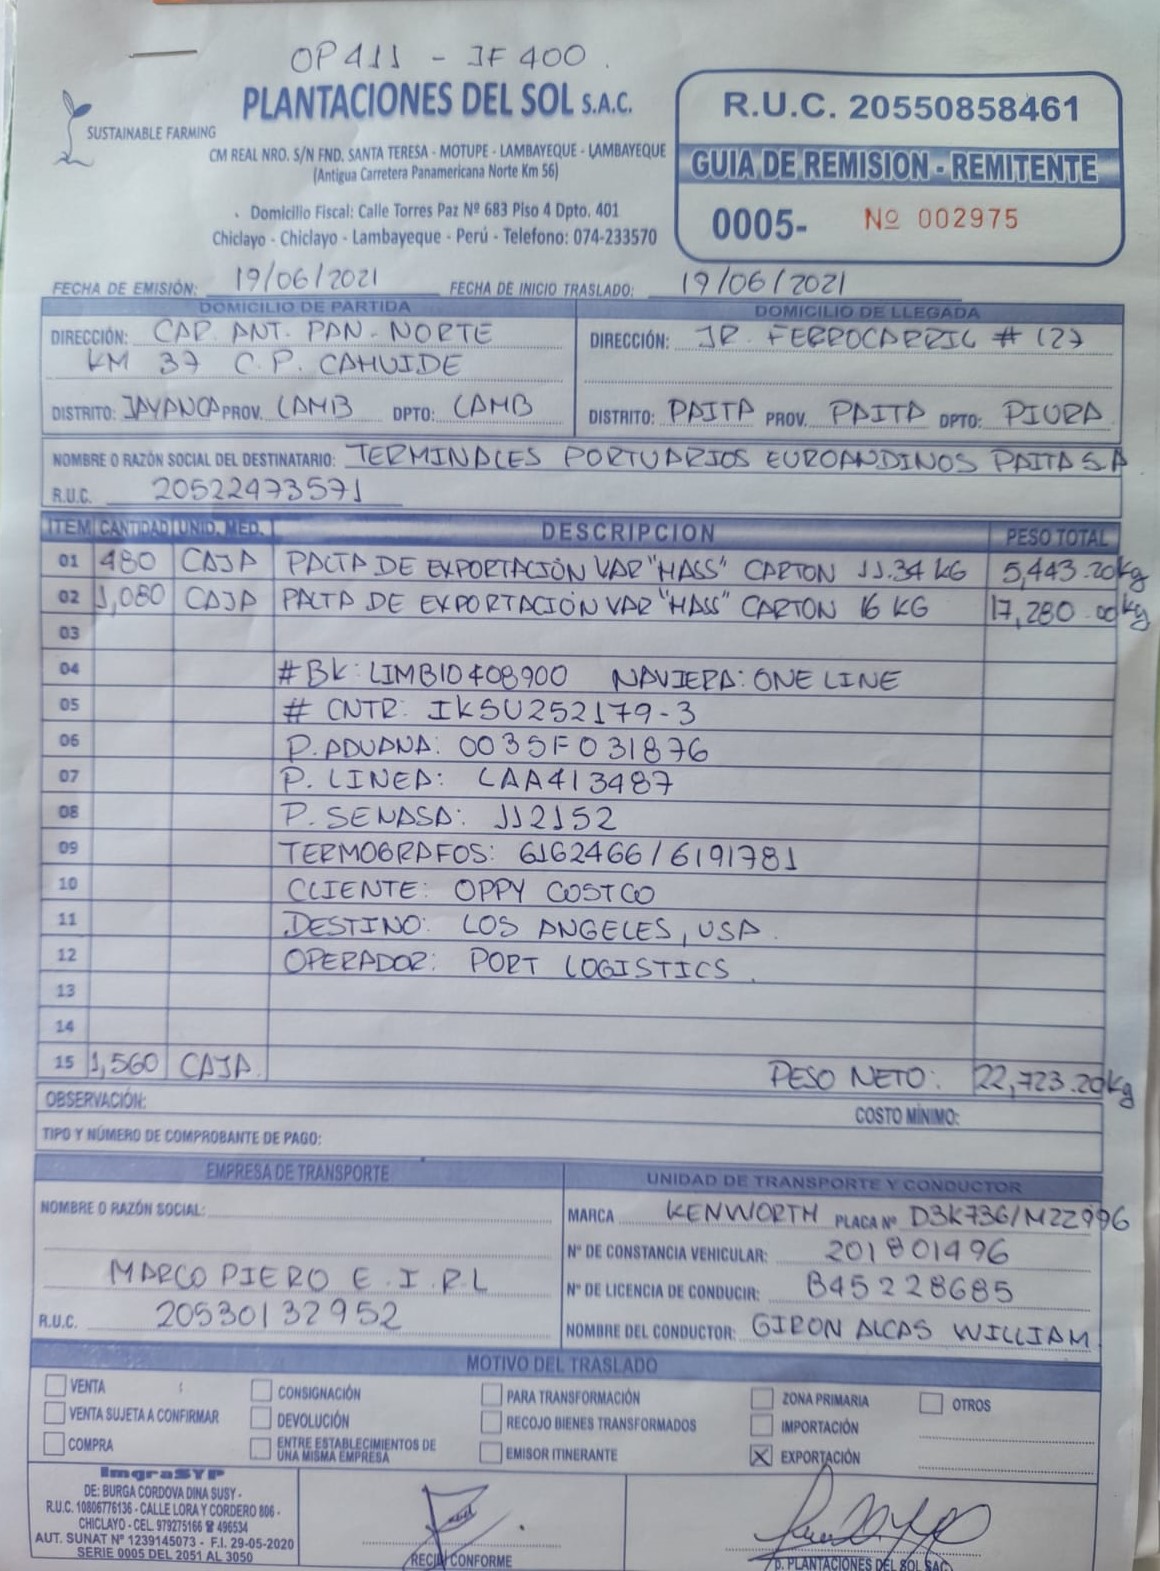 OP411 - JF400.
SUSTAINABLE FARMING
PLANTACIONES DEL SOL S.A.C.
CM REAL NRO. S/N FND. SANTA TERESA - MOTUPE - LAMBAYEQUE - LAMBAYEQUE
(Antigua Carretera Panamericana Norte Km 56)
Domicilio Fiscal: Calle Torres Paz Nº 683 Piso 4 Dpto. 401
Chiclayo - Chiclayo - Lambayeque - Perú - Telefono: 074-233570
R.U.C. 20550858461
GUIA DE REMISION - REMITENTE
0005- Nº 002975
FECHA DE EMISIÓN: 19/06/2021 FECHA DE INICIO TRASLADO: 19/06/2021
DOMICILIO DE PARTIDA
DIRECCIÓN: CAR. ANT. PAN. NORTE
KM 37 C.P. CAHUIDE
DISTRITO: JAYANCA PROV. LAMB DPTO: LAMB
DOMICILIO DE LLEGADA
DIRECCIÓN: JR. FERROCARRIL # 127
DISTRITO: PAITA PROV. PAITA DPTO: PIURA
NOMBRE O RAZÓN SOCIAL DEL DESTINATARIO: TERMINALES PORTUARIOS EUROANDINOS PAITA S.A
R.U.C. 20522473571
ITEM CANTIDAD UNID. MED. DESCRIPCION PESO TOTAL
01 480 CAJA PALTA DE EXPORTACIÓN VAR "HASS" CARTON 11.34 KG 5,443.20kg
02 1,080 CAJA PALTA DE EXPORTACIÓN VAR "HASS" CARTON 16 KG 17,280.00kg
03
04 #BK: LIMB10408900 NAVIERA: ONE LINE
05 # CNTR: IKSU252179-3
06 P. ADUANA: 0035F031876
07 P. LINEA: LAA413487
08 P. SENASA: 112152
09 TERMOGRAFOS: 6162466/6191781
10 CLIENTE: OPPY COSTCO
11 DESTINO: LOS ANGELES, USA.
12 OPERADOR: PORT LOGISTICS.
13
14
15 1,560 CAJA. PESO NETO: 22,723.20kg
OBSERVACIÓN:
COSTO MÍNIMO:
TIPO Y NÚMERO DE COMPROBANTE DE PAGO:
EMPRESA DE TRANSPORTE
NOMBRE O RAZÓN SOCIAL:
MARCO PIERO E.I.R.L
R.U.C. 20530132952
UNIDAD DE TRANSPORTE Y CONDUCTOR
MARCA KENWORTH PLACA Nº D3K736/M2Z996
Nº DE CONSTANCIA VEHICULAR: 201801496
Nº DE LICENCIA DE CONDUCIR: B45228685
NOMBRE DEL CONDUCTOR: GIRON ALCAS WILLIAM
MOTIVO DEL TRASLADO
VENTA CONSIGNACIÓN PARA TRANSFORMACIÓN ZONA PRIMARIA OTROS
VENTA SUJETA A CONFIRMAR DEVOLUCIÓN RECOJO BIENES TRANSFORMADOS IMPORTACIÓN
COMPRA ENTRE ESTABLECIMIENTOS DE UNA MISMA EMPRESA EMISOR ITINERANTE X EXPORTACIÓN
ImgraSYP
DE: BURGA CORDOVA DINA SUSY -
R.U.C. 10806776136 - CALLE LORA Y CORDERO 806 -
CHICLAYO - CEL. 979275166 ☎ 496534
AUT. SUNAT Nº 1239145073 - F.I. 29-05-2020
SERIE 0005 DEL 2051 AL 3050
RECIBI CONFORME
p. PLANTACIONES DEL SOL SAC